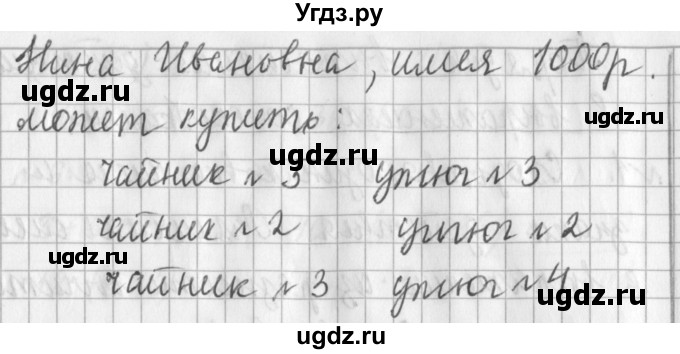 Угдз.ру
Нина Ивановна, имея 1000р.
ugdz.ru ugdz.ru
может купить:
ugdz.ru
чайник № 3 утюг № 3
ugdz.ru
чайник № 2 утюг № 2
ugdz.ru
чайник № 3 утюг № 4
ugdz.ru
ugdz.ru